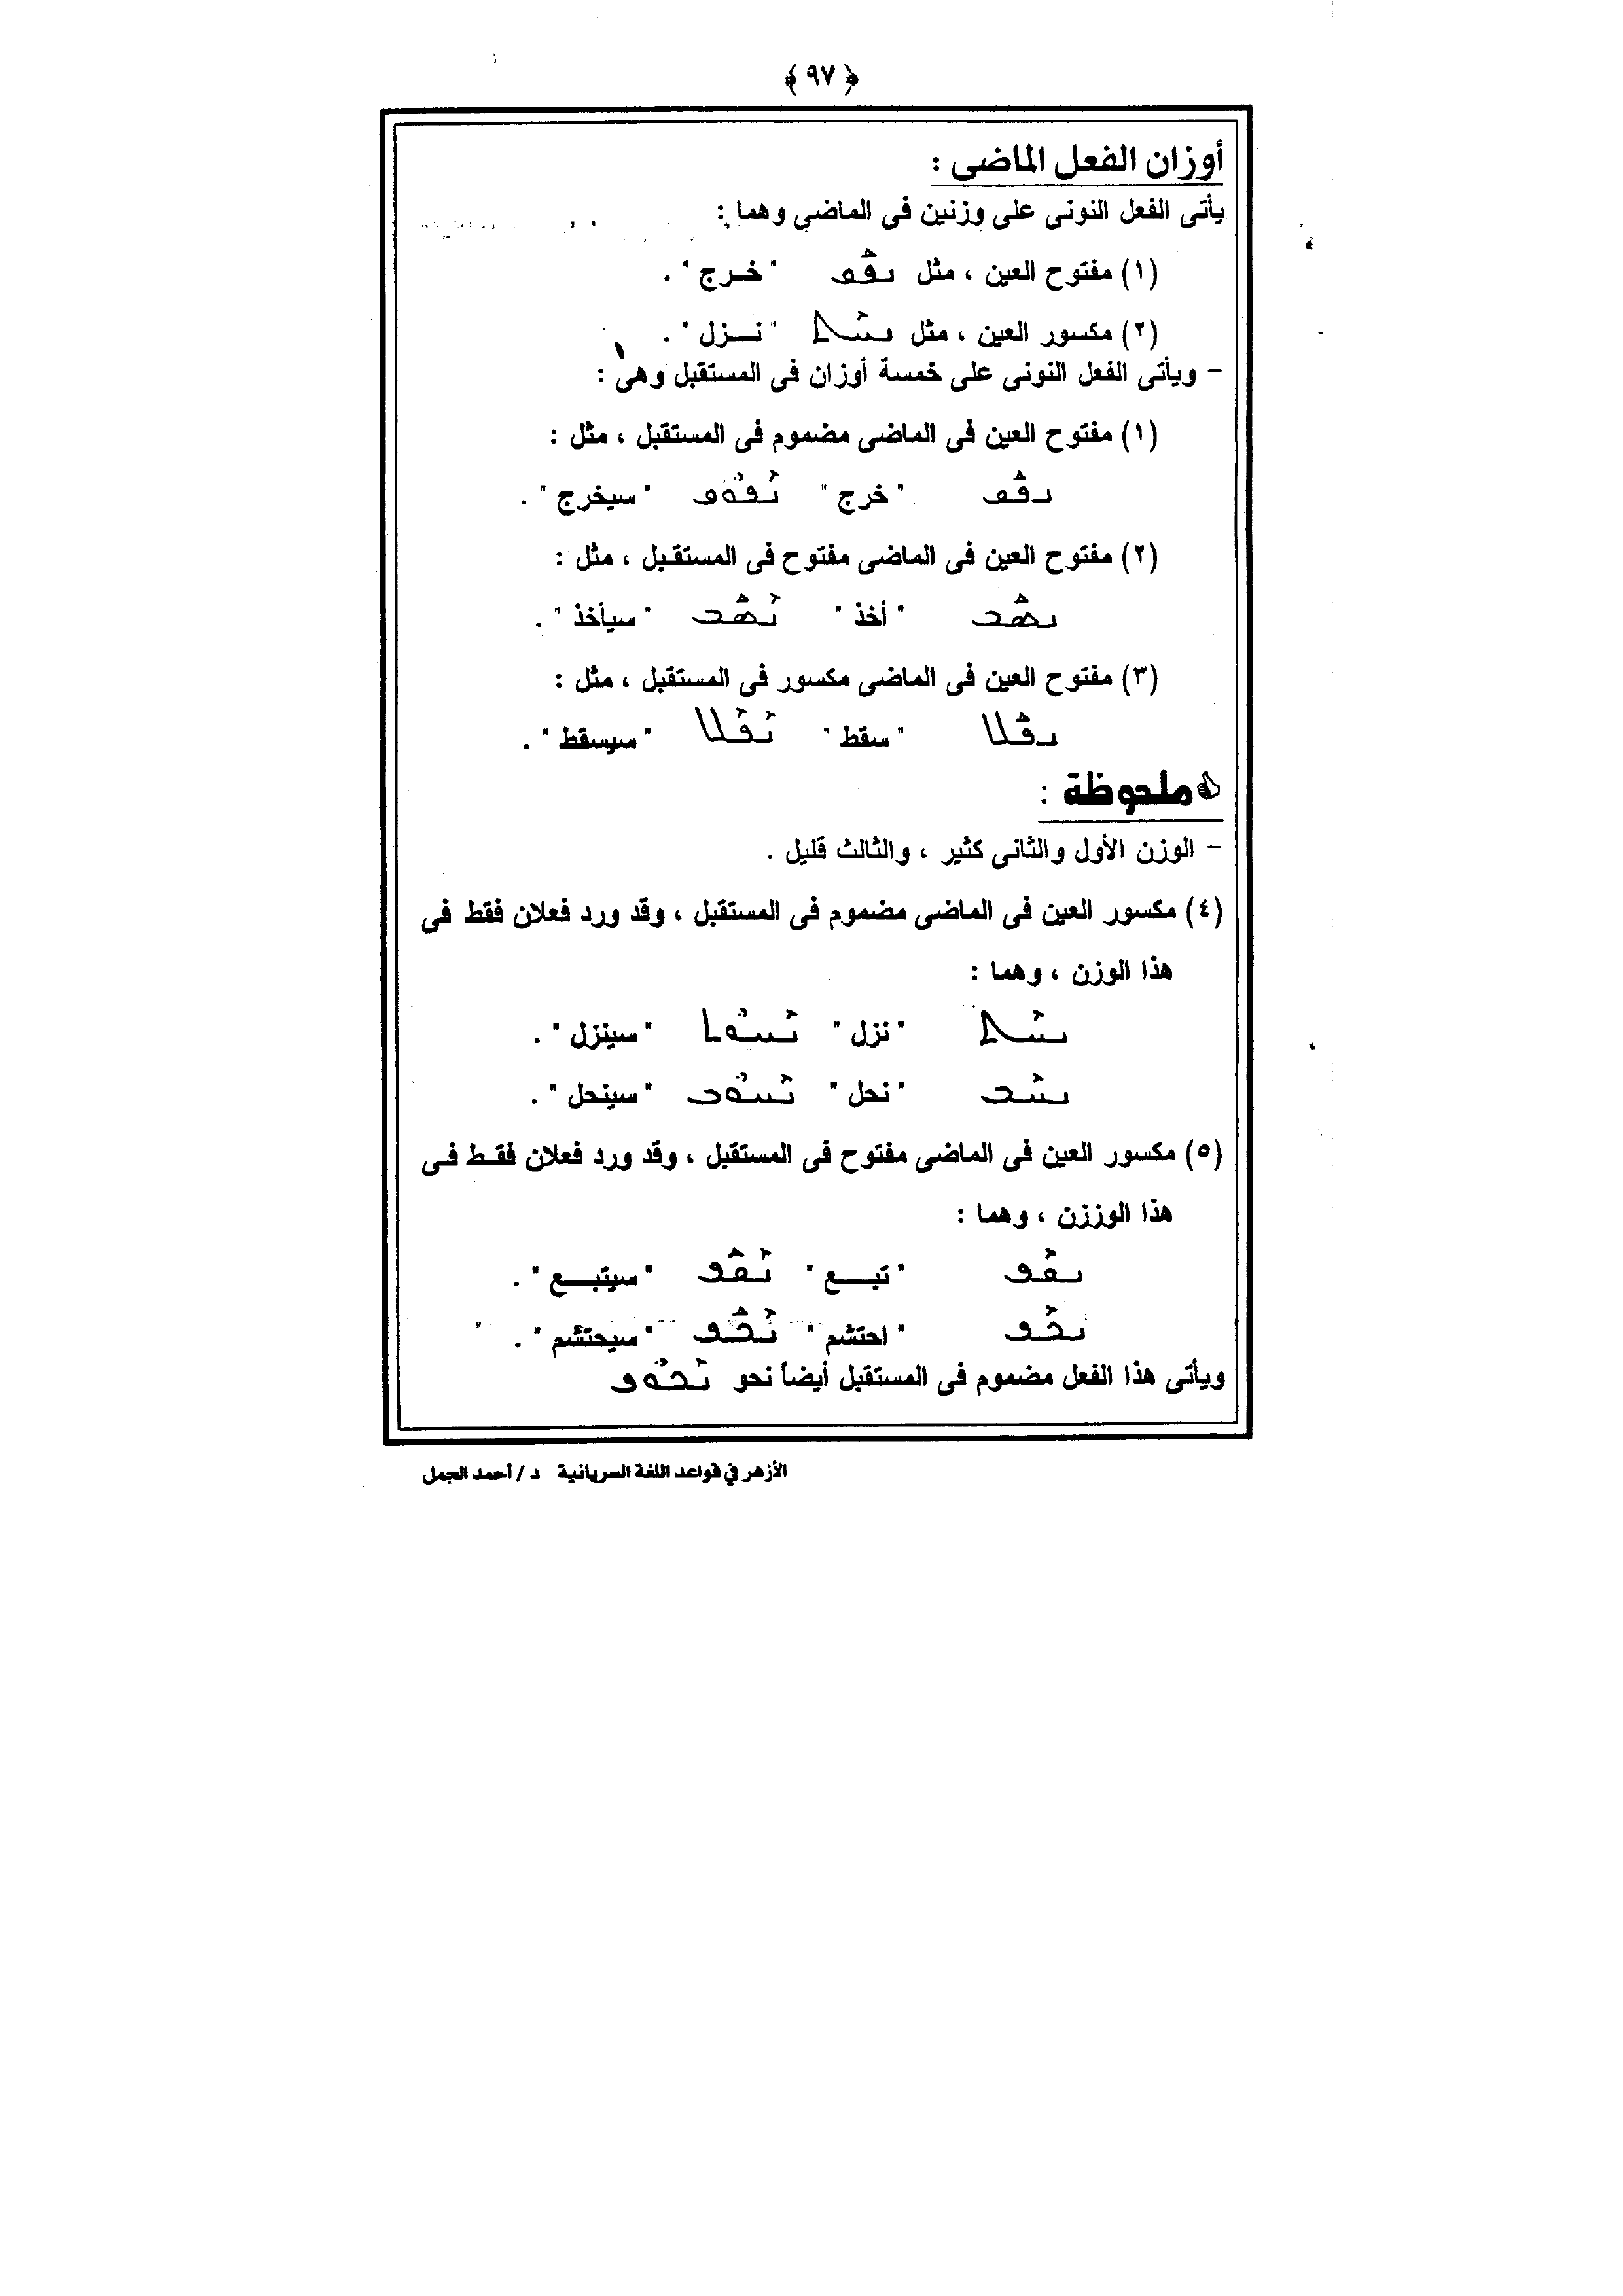 ﴿ ٩٧ ﴾
أوزان الفعل الماضى :
يأتى الفعل النونى على وزنين فى الماضى وهما :
(١) مفتوح العين ، مثل ܢܦܰܩ " خرج " .
(٢) مكسور العين ، مثل ܢܚܶܬ " نزل " .
- ويأتى الفعل النونى على خمسة أوزان فى المستقبل وهى :
(١) مفتوح العين فى الماضى مضموم فى المستقبل ، مثل :
ܢܦܰܩ " خرج " ܢܶܦܽܘܩ " سيخرج " .
(٢) مفتوح العين فى الماضى مفتوح فى المستقبل ، مثل :
ܢܣܰܒ " أخذ " ܢܶܣܰܒ " سيأخذ " .
(٣) مفتوح العين فى الماضى مكسور فى المستقبل ، مثل :
ܢܦܰܠ " سقط " ܢܶܦܶܠ " سيسقط " .
ملحوظة :
- الوزن الأول والثانى كثير ، والثالث قليل .
(٤) مكسور العين فى الماضى مضموم فى المستقبل ، وقد ورد فعلان فقط فى
هذا الوزن ، وهما :
ܢܚܶܬ " نزل " ܢܶܚܽܘܬ " سينزل " .
ܢܚܶܒ " نحل " ܢܶܚܽܘܒ " سينحل " .
(٥) مكسور العين فى الماضى مفتوح فى المستقبل ، وقد ورد فعلان فقط فى
هذا الوززن ، وهما :
ܢܩܶܦ " تبع " ܢܶܩܰܦ " سيتبع " .
ܢܟܶܦ " احتشم " ܢܶܟܰܦ " سيحتشم " .
ويأتى هذا الفعل مضموم فى المستقبل أيضاً نحو ܢܶܟܽܘܦ
الأزهر في قواعد اللغة السريانية د / أحمد الجمل